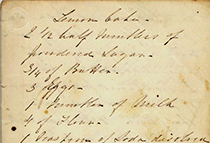 Lemon Cake.
2 ½ half tumblers of
powdered Sugar.
3/4 of Butter.
5 Eggs.
1 tumbler of Milk
4 of Flour.
1 teaspoon of Soda dissolved